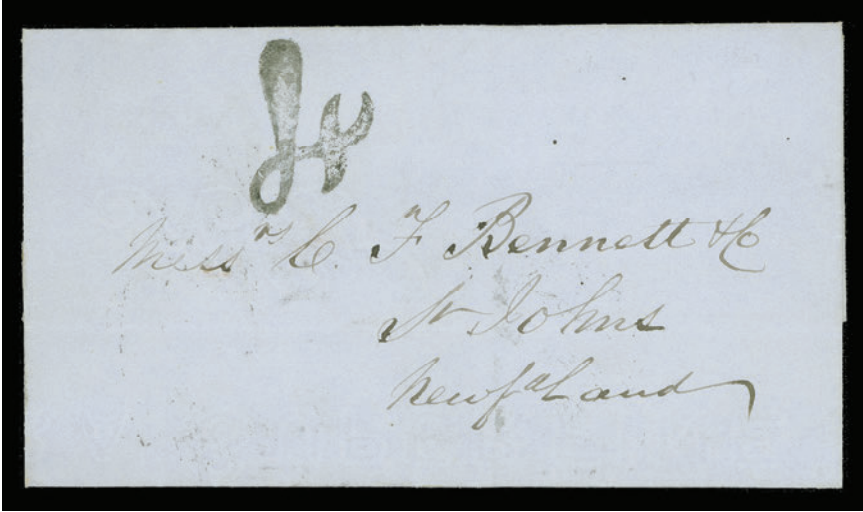 4
Messrs C. F. Bennett & Co
St Johns
Newfdland